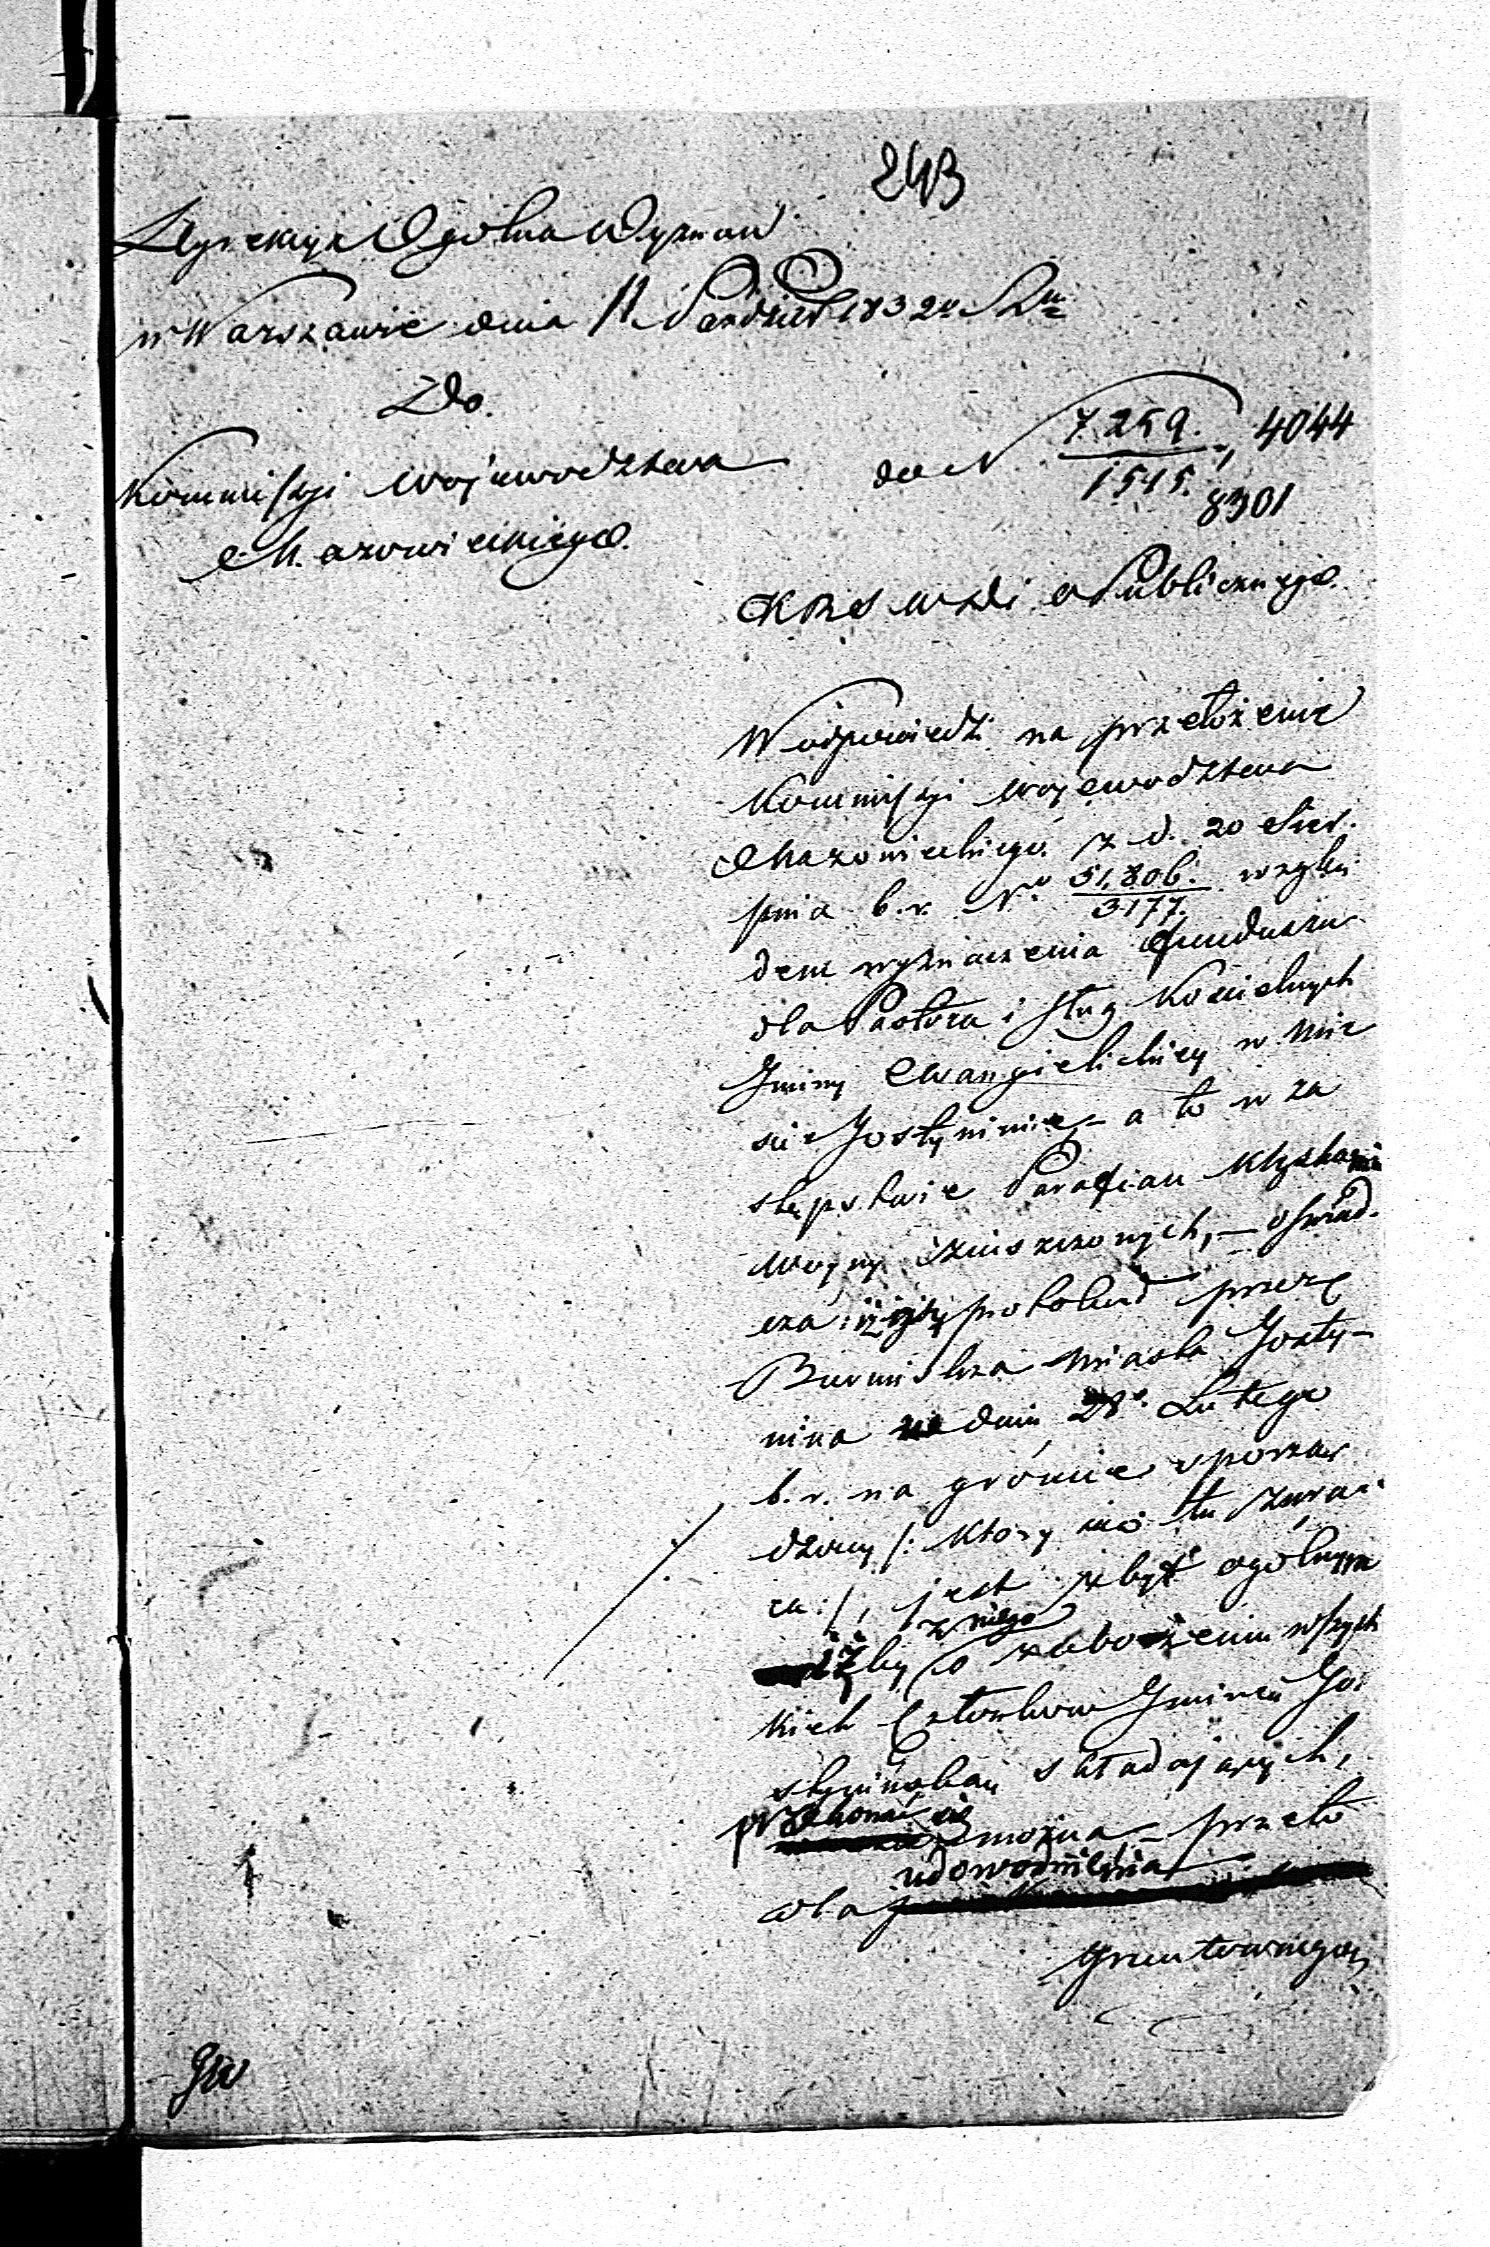 243
Dyrekcya Ogolna Wyznań
w Warszawie dnia 11 Paździer 1832 R.
Do
Kommissyi Województwa
Mazowieckiego.
do N 7259./1515., 4044
8301
KRSW i O Publicznego.
W odpowiedzi na przełożenie
Kommissyi Województwa
Mazowieckiego z d. 20 Sier.
pnia b.r. No 51,806./3177. wzglę
dem wyznaczenia funduszu
dla Pastora i sług Kościelnych
Gminy Ewangielickiey w Mie
ście Gostyninie, – a to w za
stępstwie Parafian klęskami
woyny zniszczonych, – oświad.
cza: iż protokuł przez
Burmistrza Miasta Gosty–
nina dnia 28o Lutego
b.r. na gróncie sporzą
dzony /: który się tu zwra
ca :/, jest zbyt ogólnym
z niego
iżby o położeniu wszyst
kich Członków Gminę Go
stynińską składających,
przekonać się
można, – przeto
udowodnienia
dla
gruntownego
GW